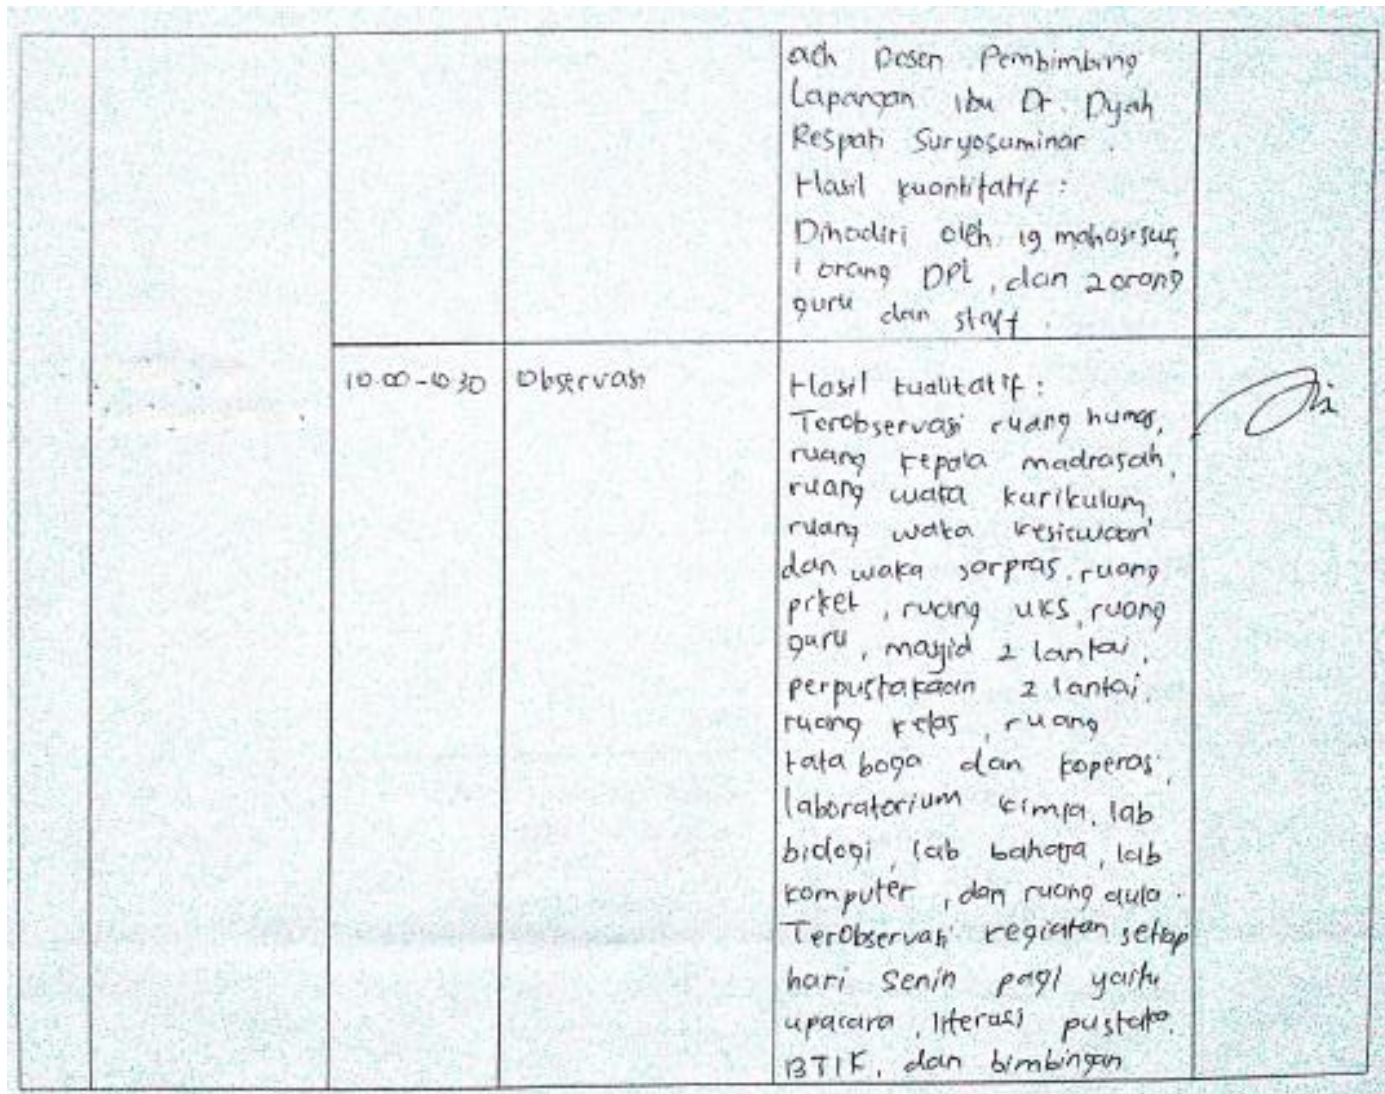 oleh Dosen Pembimbing
Lapangan Ibu Dr. Dyah
Respati Suryosuminar.
Hasil kuantitatif :
Dihadiri oleh 19 mahasiswa,
1 orang DPL, dan 2 orang
guru dan staff.
10.00-10.30
Observasi
Hasil kualitatif :
Terobservasi ruang humas,
ruang kepala madrasah,
ruang waka kurikulum,
ruang waka kesiswaan
dan waka sarpras, ruang
piket, ruang UKS, ruang
guru, masjid 2 lantai,
perpustakaan 2 lantai,
ruang kelas, ruang
tata boga dan koperasi,
laboratorium kimia, lab
biologi, lab bahasa, lab
komputer, dan ruang aula.
TerObservasi kegiatan setiap
hari Senin pagi yaitu
upacara, literasi pustaka,
BTIK, dan bimbingan